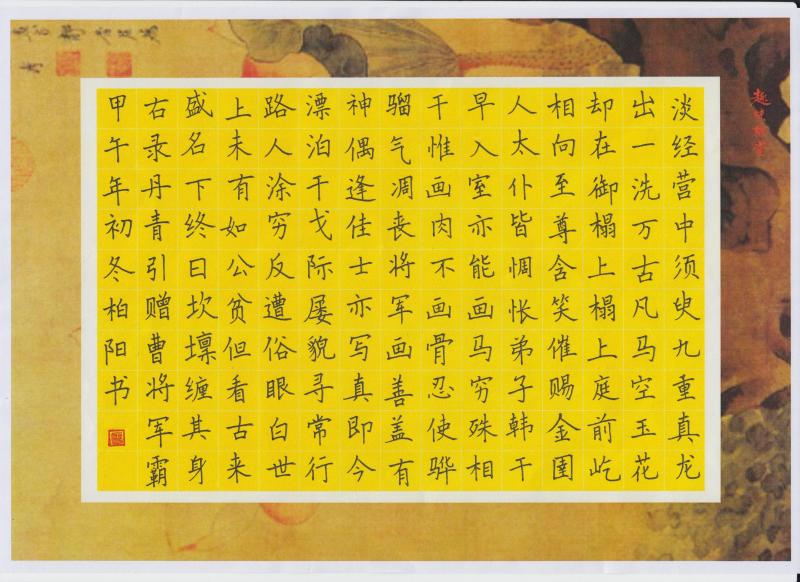 淡经营中须臾九重真龙
出一洗万古凡马空玉花
却在御榻上榻上庭前屹
相向至尊含笑催赐金圉
人太仆皆惆怅弟子韩干
早入室亦能画马穷殊相
干惟画肉不画骨忍使骅
骝气凋丧将军画善盖有
神偶逢佳士亦写真即今
漂泊干戈际屡貌寻常行
路人涂穷反遭俗眼白世
上未有如公贫但看古来
盛名下终日坎壈缠其身
右录丹青引赠曹将军霸
甲午年初冬柏阳书